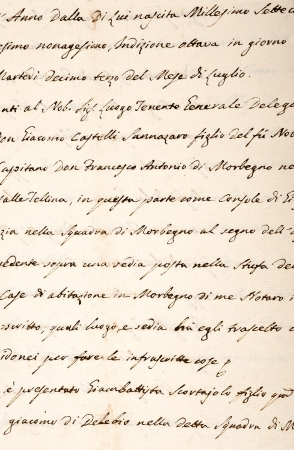 Anno Dalla Di Lui nascita Millesimo Sette c
simo nonagesimo, Indizione ottava in giorno
Martedi decimo terzo del Mese di Luglio.
nti al Nob. Sig. Luogo Tenente Generale Delega
Don Giacomo Castelli Sannazaro figlio del fu Nob
Capitano Don Francesco Antonio di Morbegno ne
alle Tellina, in questa parte come Console di
zia nella Squadra di Morbegno al segno dell'
edente sopra una sedia posta nella Stufa de
Case di abitazione in Morbegno di me Notaro i
scritto, quali luogo, e sedia hà egli trascelto
idonei per fare le infrascritte cose
è presentato Giambattista Scortajolo figlio
giacomo di Delebio nella detta Squadra di M